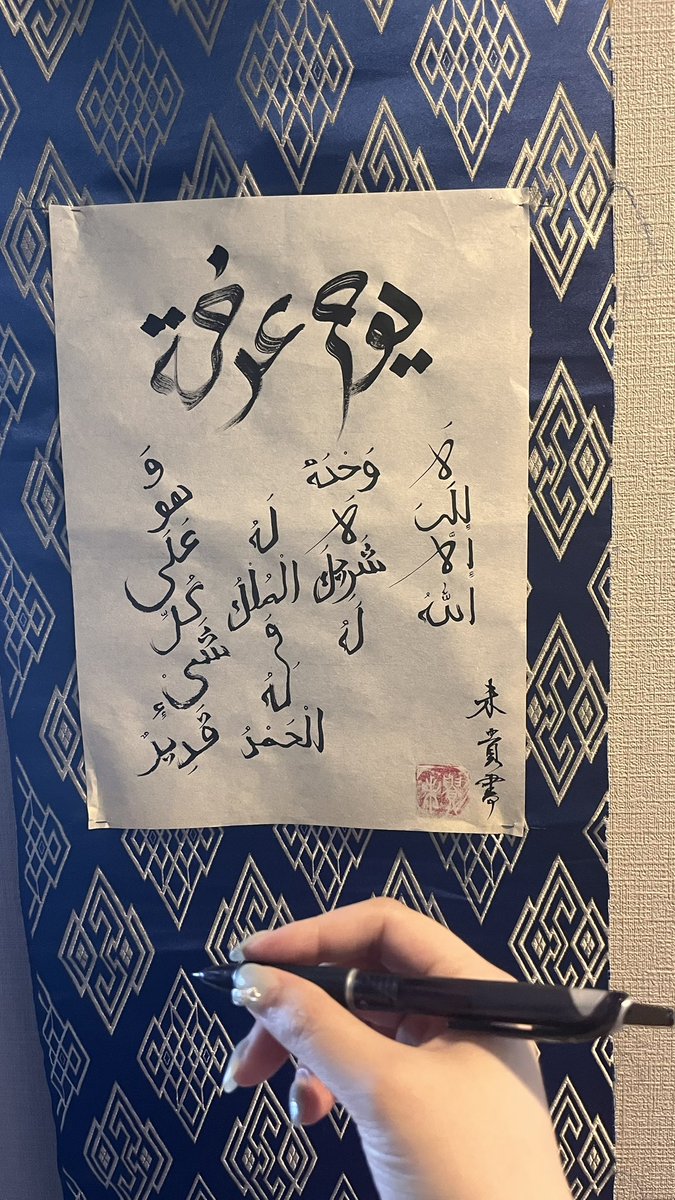 يوم عرفة
لَا إِلَهَ إِلَّا اللهُ
وَحْدَهُ لَا شَرِيكَ لَهُ
لَهُ الْمُلْكُ وَ لَهُ الْحَمْدُ
وَ هو عَلَى كُلِّ شَيْءٍ قَدِيرٌ
未貴書